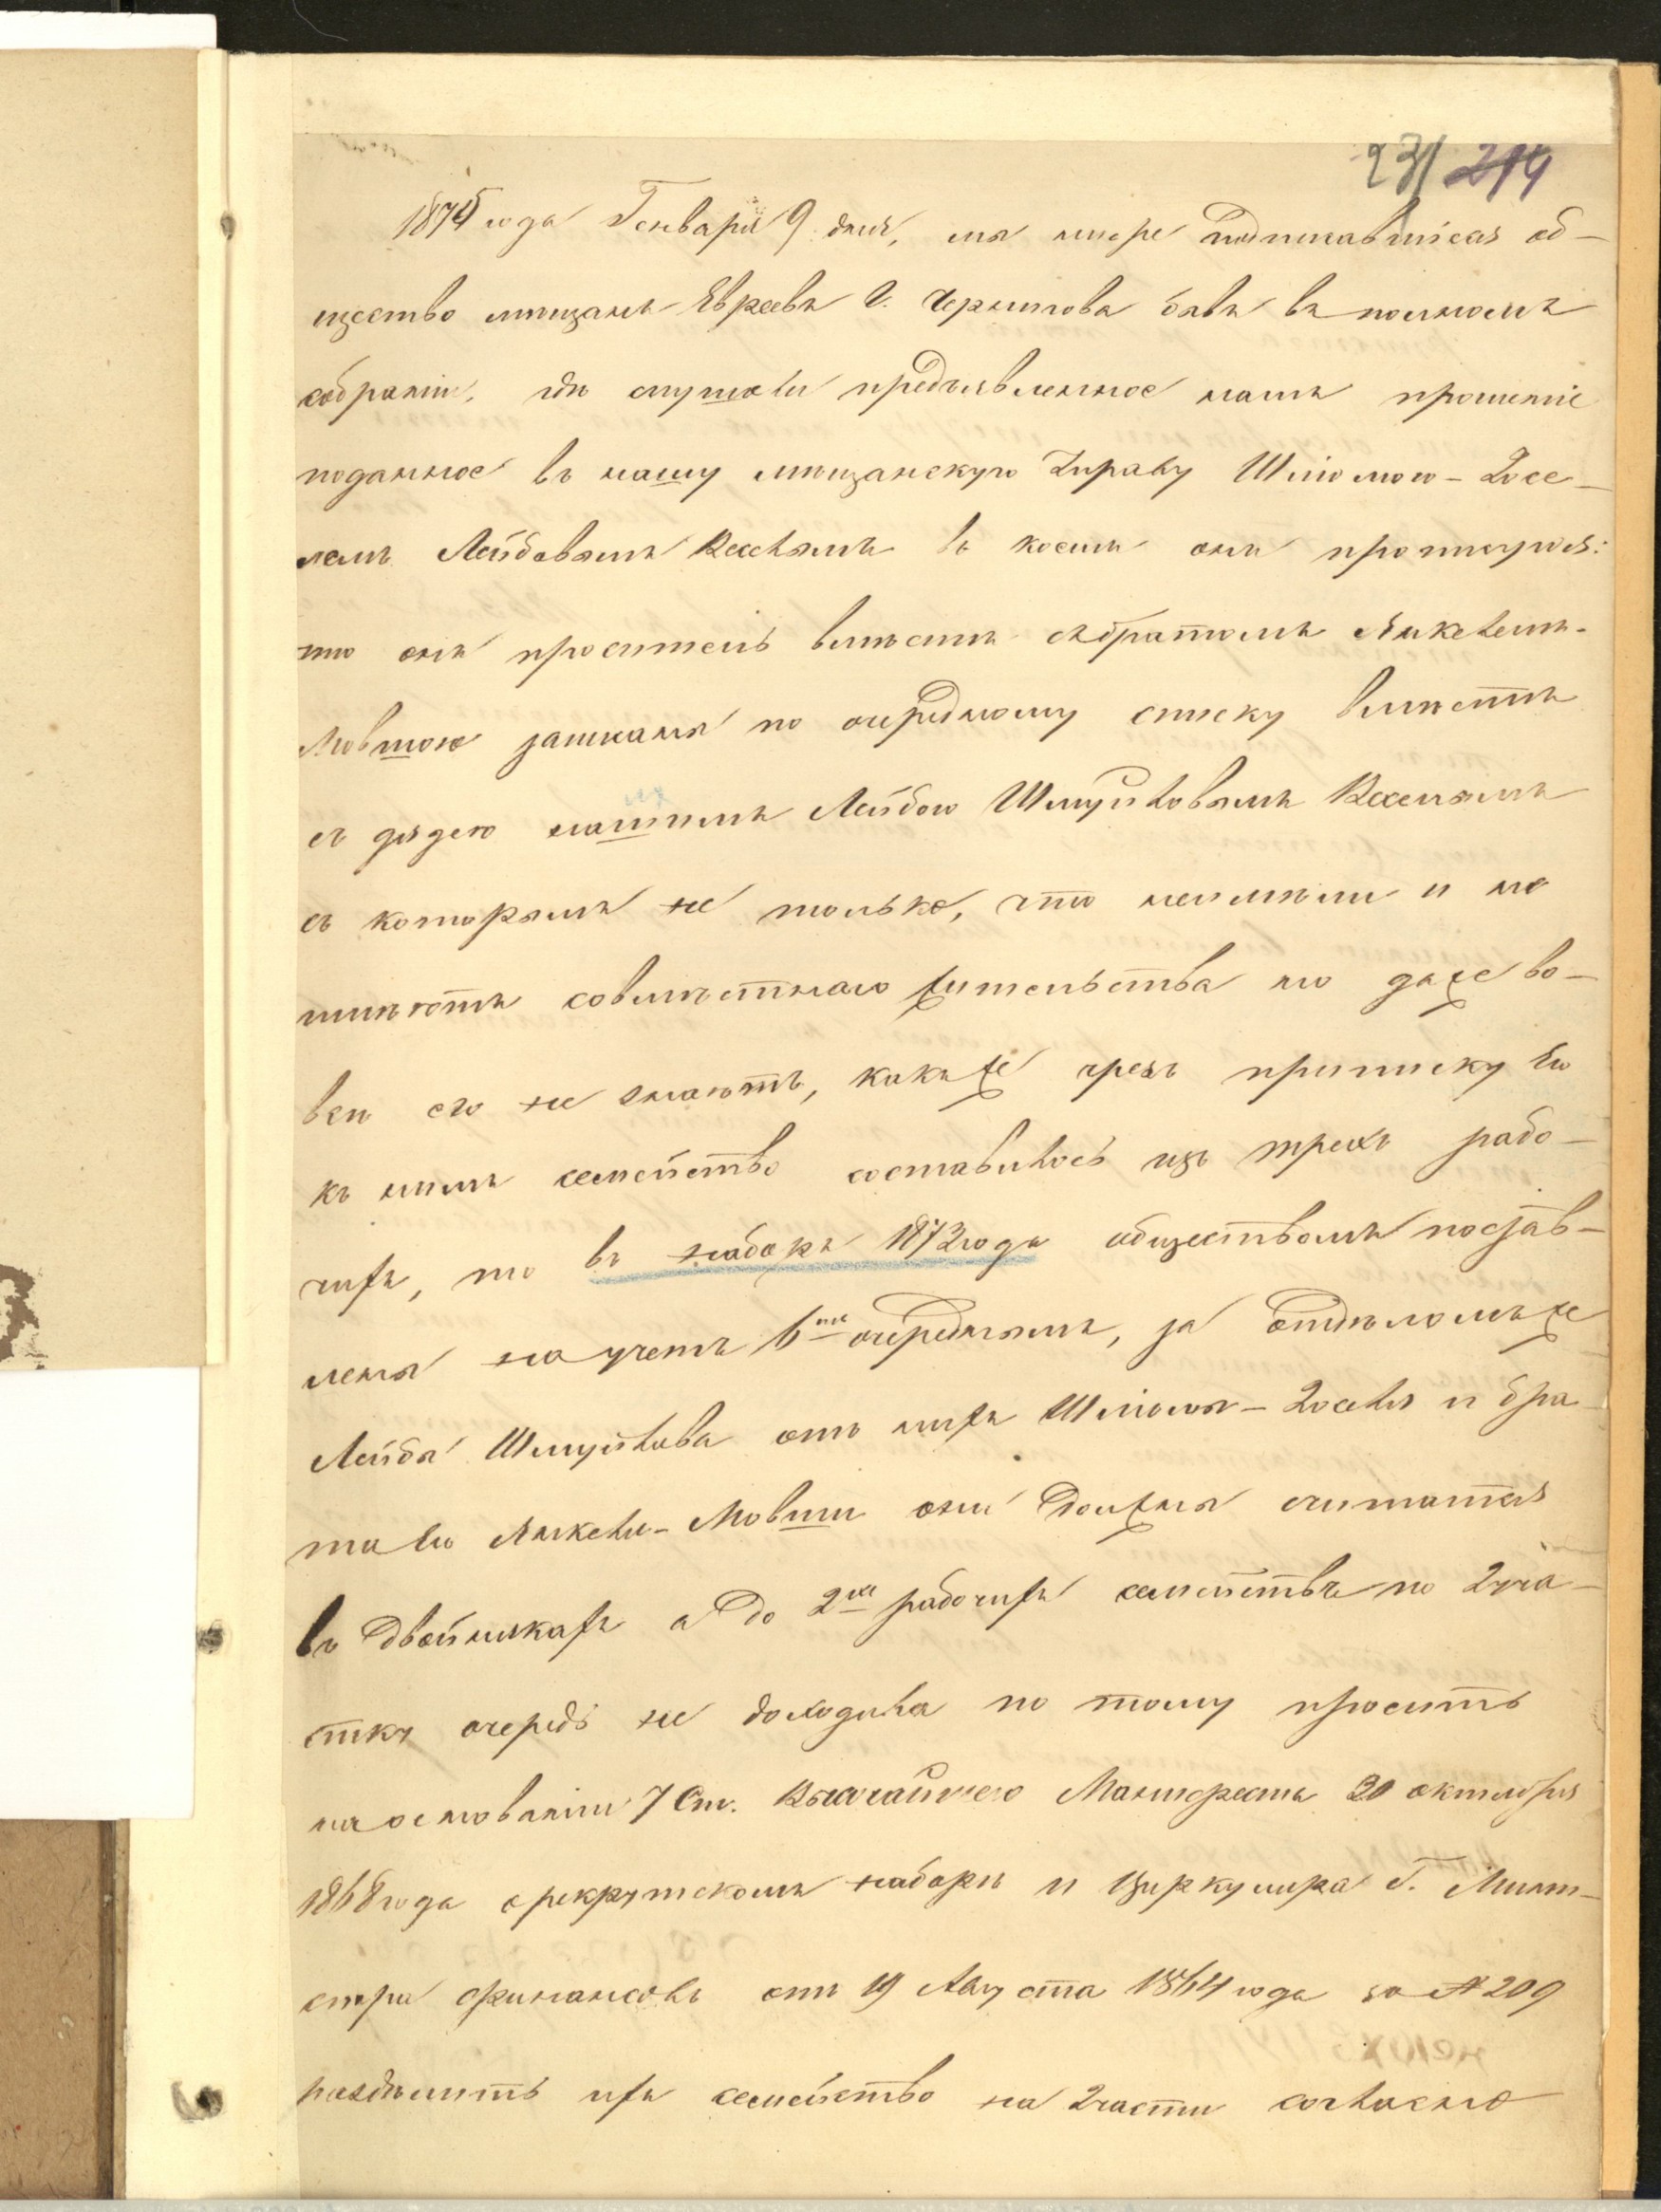 231 214
1875 года Генваря 9 дня, мы ниже подписавшіеся об-
щество мѣщанъ Евреевъ г. Чернигова бывъ въ полномъ
собраніи, гдѣ слушали предъявленное намъ прошеніе
поданное въ нашу мѣщанскую Управу Шліомою-Іосе-
лемъ Лейбовымъ Кесельмъ въ коемъ онъ прописуя:
что онъ проситель вмѣстѣ съ братомъ Янкелемъ-
Мовшою записаны по очередному списку вмѣстѣ
съ дядею нашимъ Лейбою Шмуйловымъ Кеселемъ
съ которымъ не только, что неимѣли и не
имѣютъ совмѣстнаго жительства но даже во-
все его не знаютъ, какъ же чрезъ приписку Его
къ нимъ семейство составилось изъ трехъ рабо-
чихъ, то въ наборѣ 1872 года обществомъ постав-
лены на учетъ 6мъ очереднымъ, за отдѣломъ же
Лейбы Шмуйлова отъ нихъ Шліомы-Іоселя и бра-
та Его Янкеля-Мовши они должны считаться
въ двойникахъ а до 2хъ рабочихъ семействъ по 2 уча-
стку очередь не доходила по тому просятъ
на основаніи 7 Ст. Высочайшего Манифеста 20 октября
1868 года о рекрутскомъ наборѣ и Циркуляра Г. Мини-
стра Финансовъ отъ 19 Августа 1864 года за № 209
раздѣлить ихъ семейство на 2 части согласно